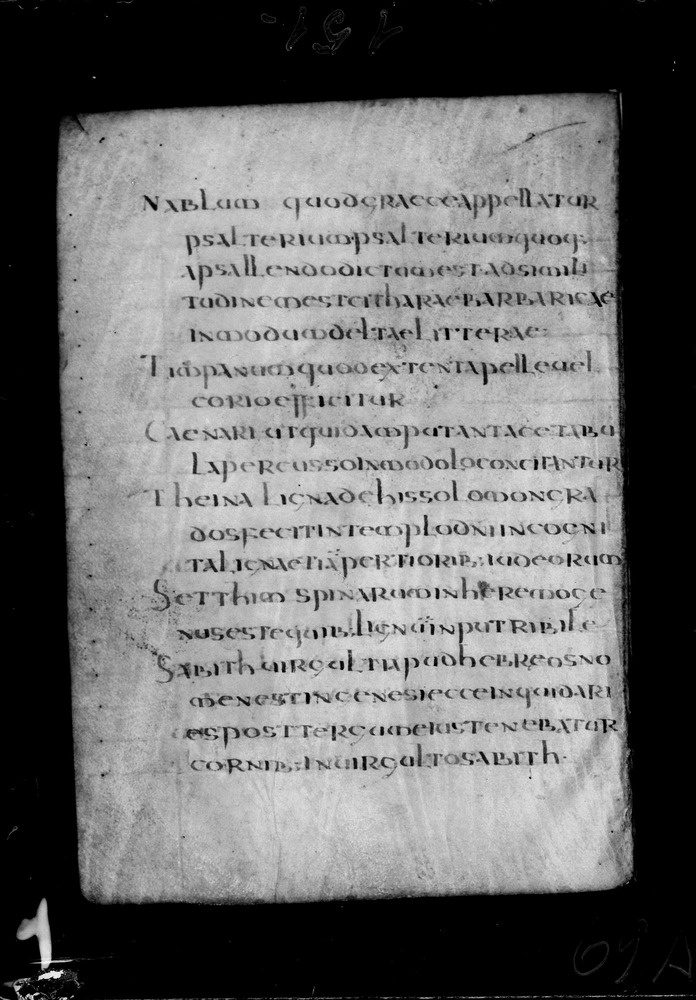 151
Nablum quod graece appellatur
psalterium psalterium quoq·
a psallendo dictum est ad simili
tudinem est citharae barbaricae
in modum deltae litterae·
Timpanum quod extenta pelle uel
corio efficitur
Caenari ut quidam putant acetabu
la percusso in modo lo concitantur
Theina ligna de his solomon gra
dos fecit in templo dni incogni
ta lignae ti a pertiorib· iudeorum
Setthim spinarum in heremo ge
nus est equib· lignū inputribile
Sabith uirgulti apud hebreos no
men est in genesi ecce inquid ari
es post tergum eius tenebatur
cornib· in uirgulto sabith·
1
69A